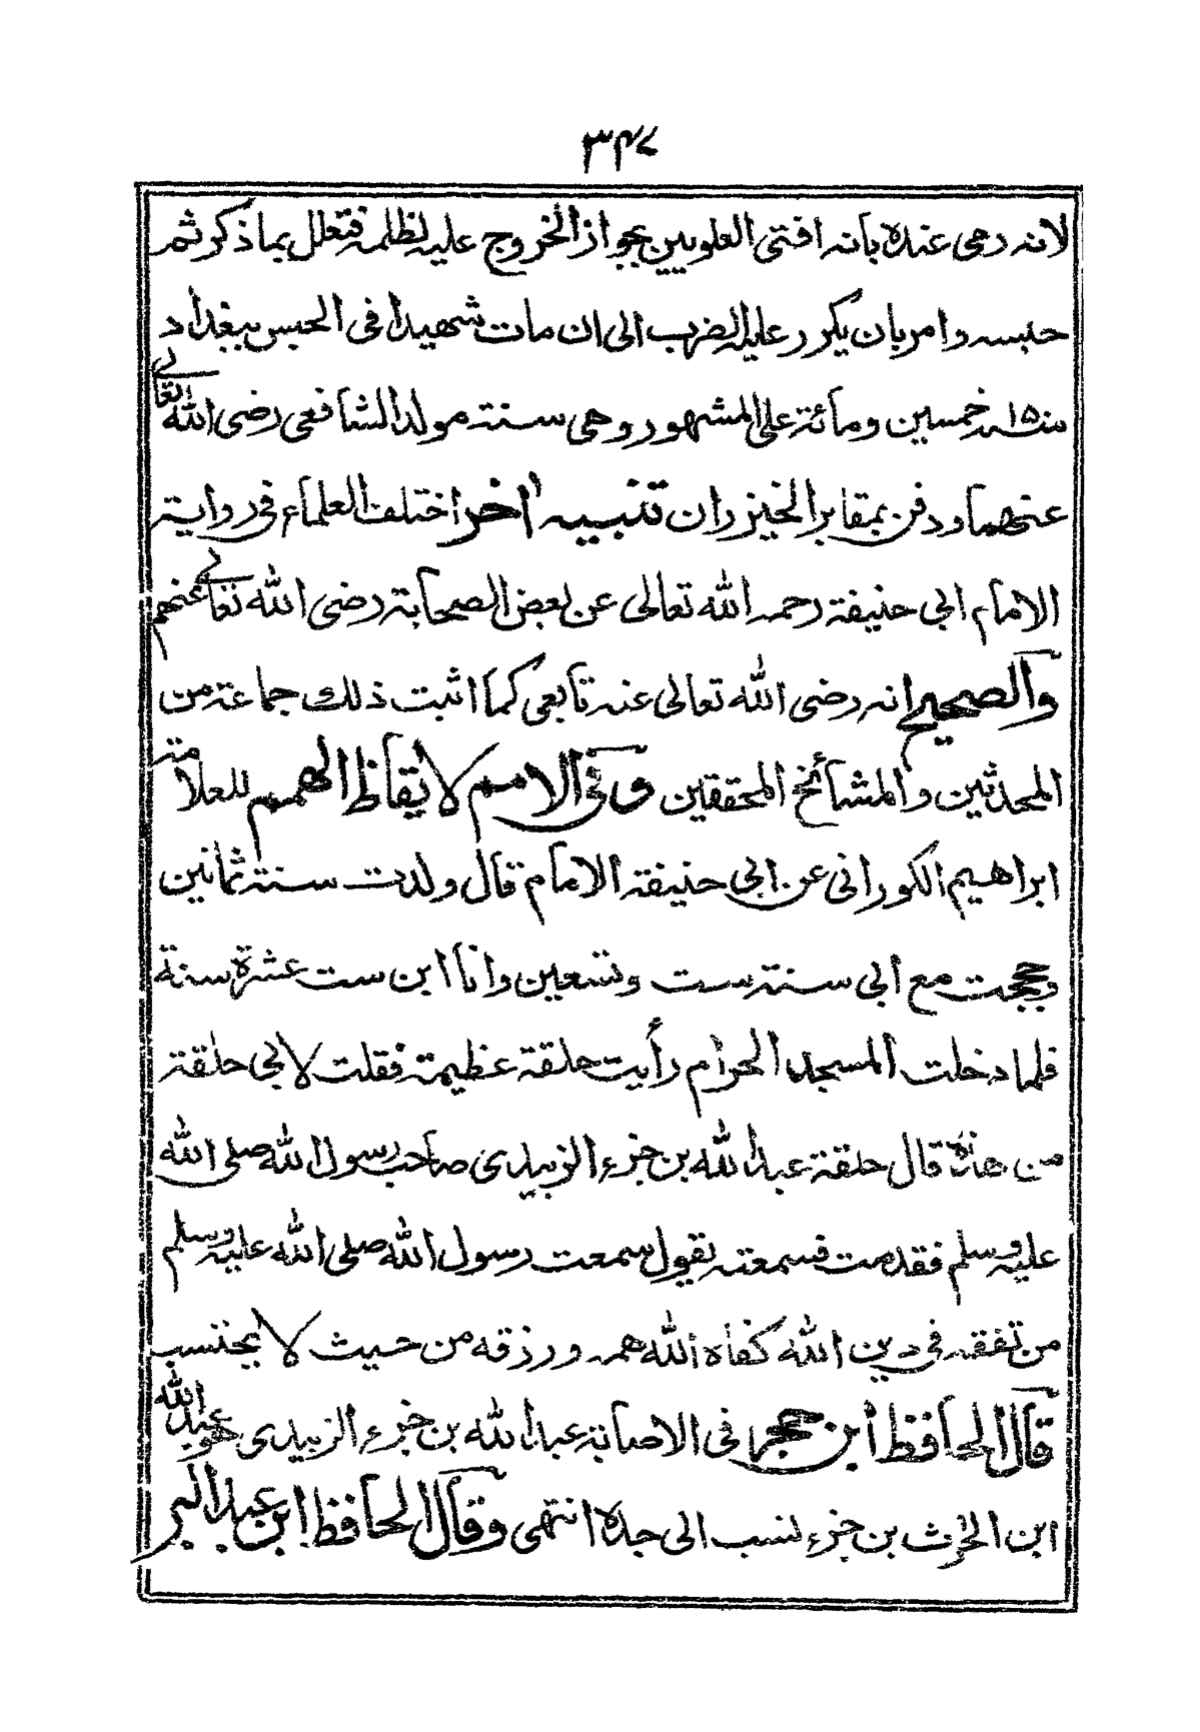 ۳۴۷
لانه رمى عنده بانه افتى العلويين بجواز الخروج عليه لظلمه فتعلل بما ذكر ثم
حبسه وامر بان يكرر عليه الضرب الى ان مات شهيدا فى الحبس ببغداد
سنه ۱۵۰ خمسين ومائة على المشهور وهى سنة مولد الشافعى رضى الله تعالى
عنهما ودفن بمقابر الخيزران تنبيه اخر اختلف العلماء فى رواية
الامام ابى حنيفة رحمه الله تعالى عن بعض الصحابة رضى الله تعالى عنهم
والصحيح انه رضى الله تعالى عنه تابعى كما اثبت ذلك جماعة من
المحدثين والمشائخ المحققين وفى الامم لايقاظ الهمم للعلامة
ابراهيم الكورانى عن ابى حنيفة الامام قال ولدت سنة ثمانين
وحججت مع ابى سنة ست وتسعين وانا ابن ست عشرة سنة
فلما دخلت المسجد الحرام رأيت حلقة عظيمة فقلت لابى حلقة
من هذه قال حلقة عبد الله بن جزء الزبيدى صاحب رسول الله صلى الله
عليه وسلم فقدمت فسمعته يقول سمعت رسول الله صلى الله عليه وسلم
من تفقه فى دين الله كفاه الله همه ورزقه من حيث لا يحتسب
قال الحافظ ابن حجر فى الاصابة عبد الله بن جزء الزبيدى هو عبد الله
ابن الحرث بن جزء لنسب الى جده انتهى وقال الحافظ ابن عبد البر